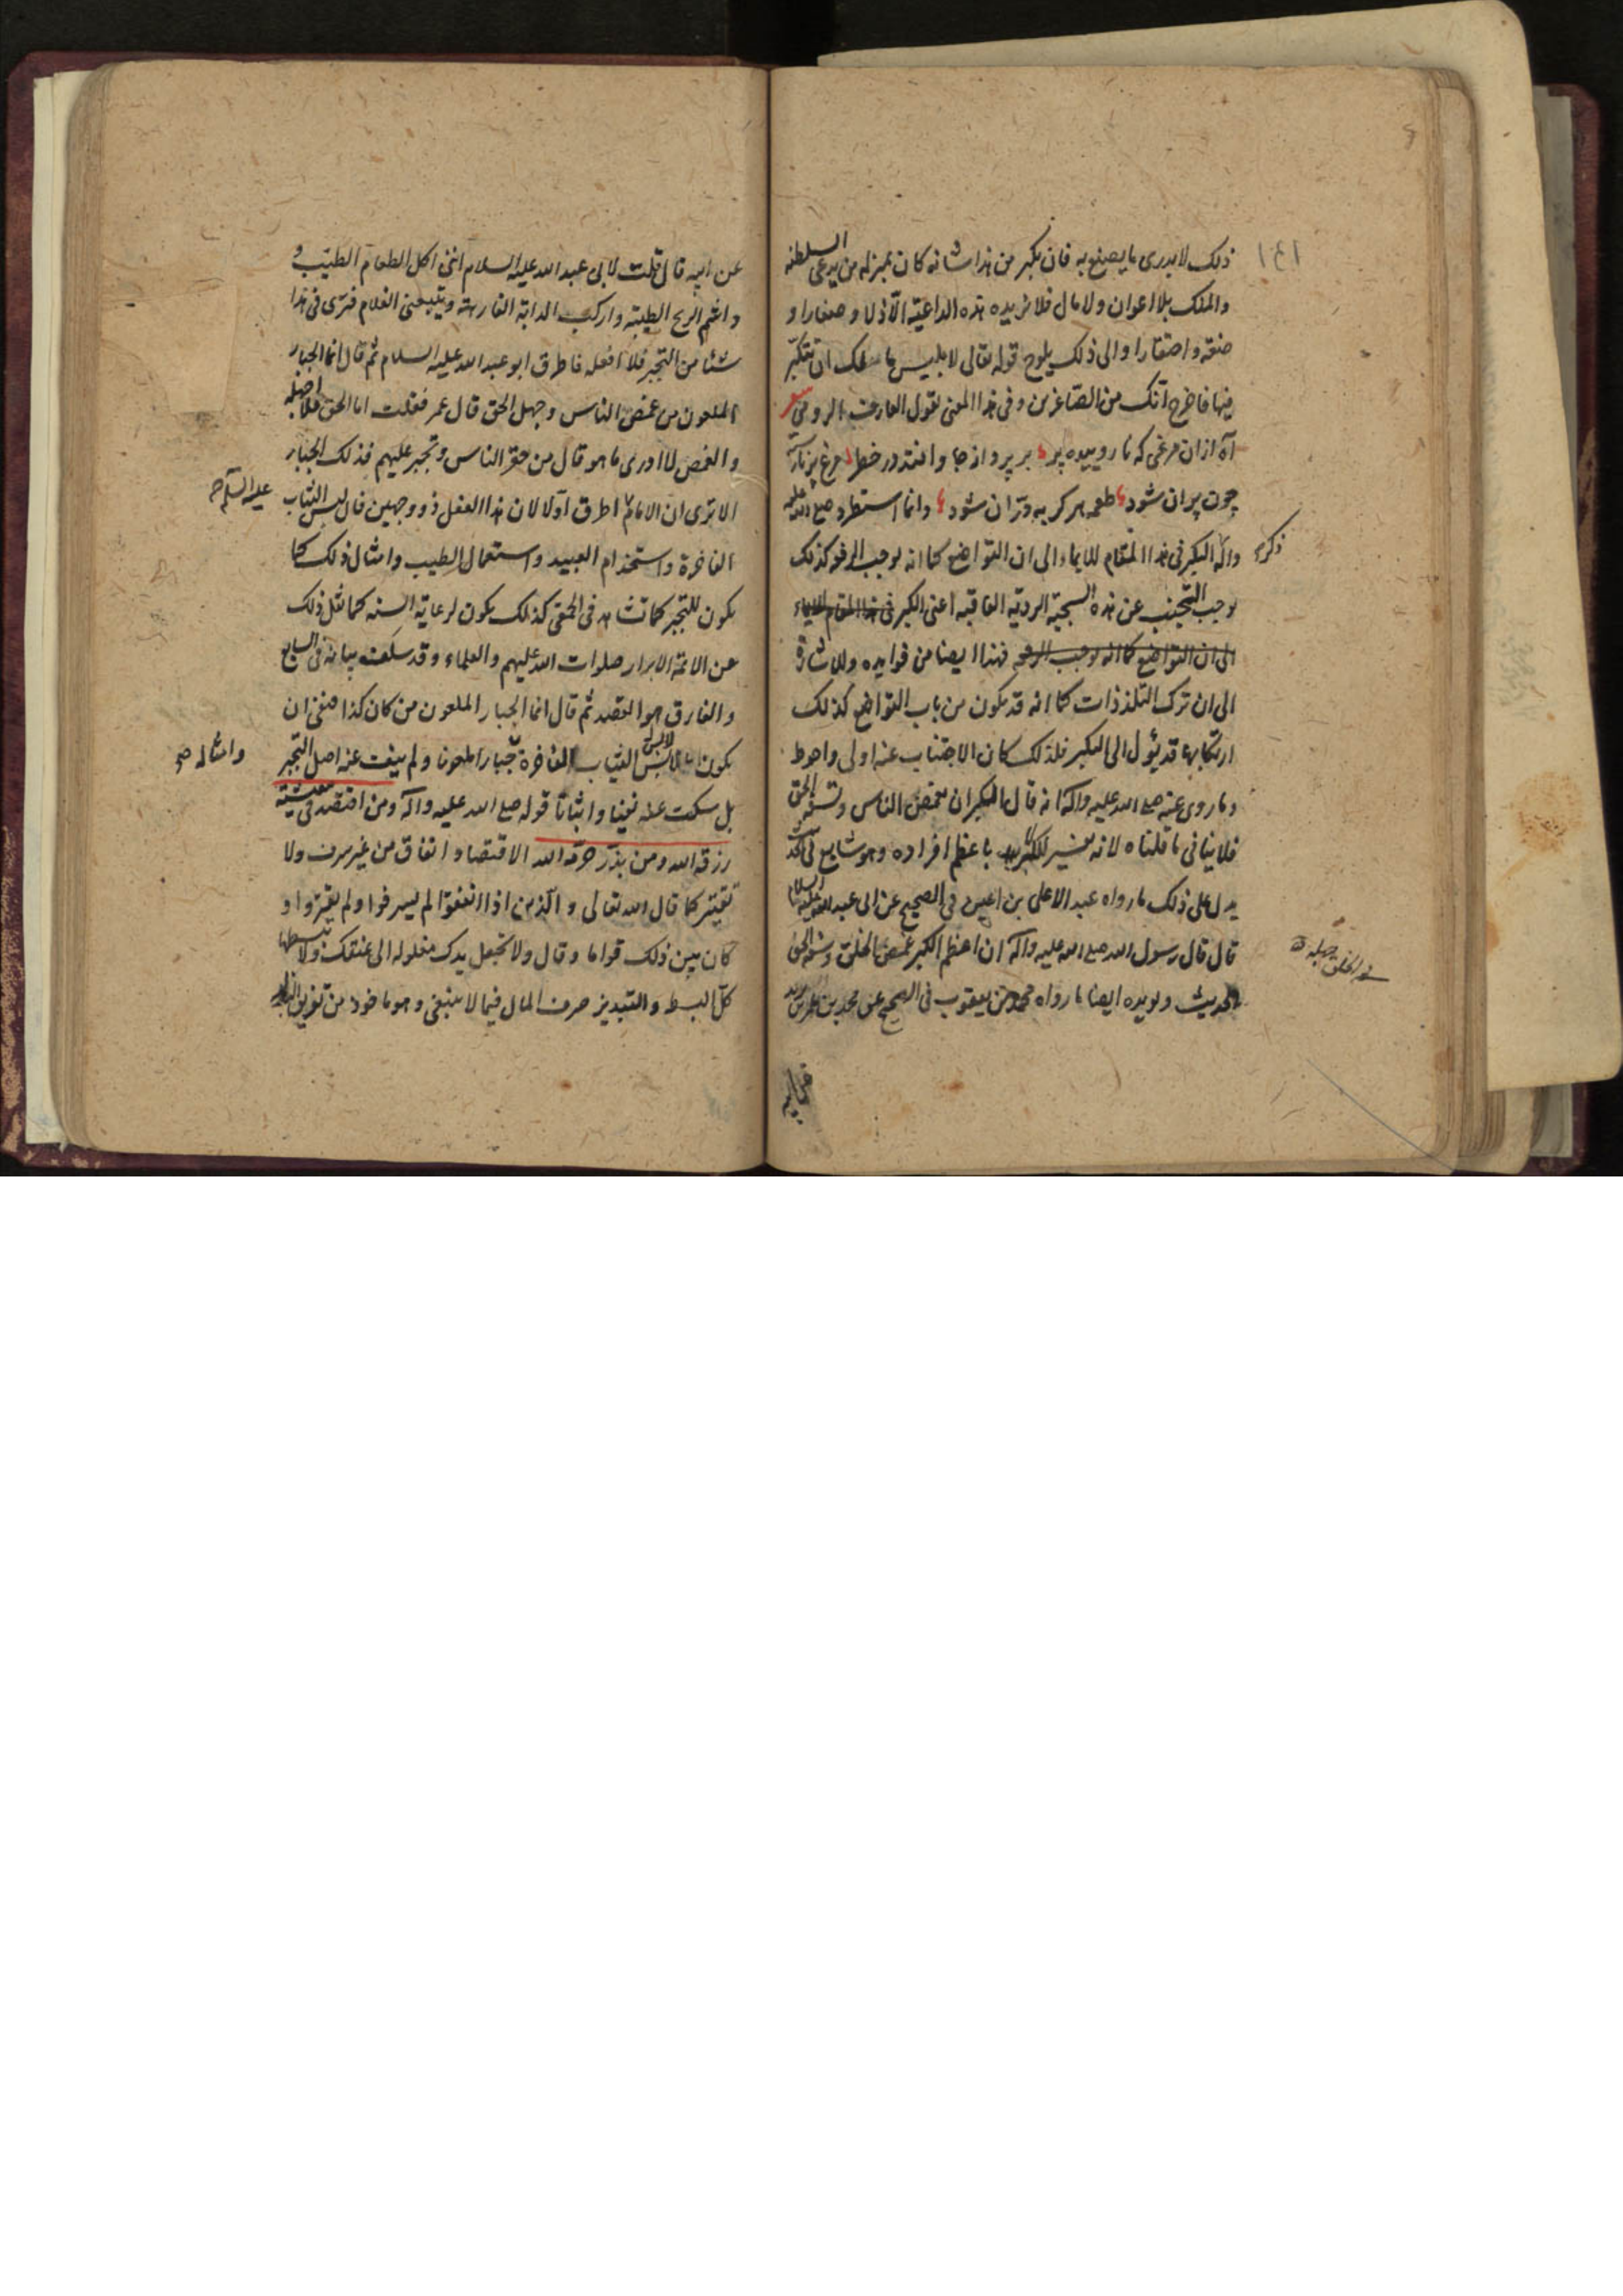 ١٤١
ذلك لا يدرى ما يصنع به فان تكبر من هذا شانه كان بمنزله من يدعى السلطنه
والملك بلا اعوان ولا مال فلا تزيده هذه الداعية الّا ذلا وصغارا و
ضعة واحتقارا والى ذلك يلوح قوله تعالى لابليس ما لك ان تتكبّر
فيها فاخرج انّك من الصّاغرين وفى هذا المعنى يقول العارف الرومى شعر
آه ازان مرغى كه نا روييده پر بر پرواز جا وافتد در خطر مرغ پر نارسته
چون پران شود طعمه هر گربه درّان شود وانما استطرد صلى الله عليه
وآله التكبر فى هذا المقام للايماء الى ان التواضع كما انه يوجب الرفعه كذلك
ذكره
يوجب التجنب عن هذه السجية الرديّه العاقبه اعنى الكبر فى هذا المقام للايماء
الى ان التواضع كما انه يوجب الرفعه فهذا ايضا من فوايده وللاشارة
الى ان ترك التلذذات كما انه قد يكون من باب التواضع كذلك
ارتكابها قد يؤل الى التكبر فلذلك كان الاجتناب عنه اولى واحوط
وما روى عنه صلى الله عليه وآله انه قال الكبر ان تغمص الناس وتسفه الحق
فلا ينافى ما قلناه لانه تفسير للكبر باعظم افراده وهو شايع
يدل على ذلك ما رواه عبد الاعلى بن اعين فى الصحيح عن ابى عبد الله عليه السلام
قال قال رسول الله صلى الله عليه وآله ان اعظم الكبر غمص الخلق وسفه الحق
الحديث ويؤيده ايضا ما رواه محمد بن يعقوب فى الصحيح عن محمد بن عمر بن يزيد
عن ابيه
عن ابيه قال قلت لابى عبد الله عليه السلام اننى اكل الطعام الطيّب و
واشم الريح الطيبة واركب الدابة الفارهة ويتبعنى الغلام فترى فى هذا
شئا من التجبر فلا افعله فاطرق ابو عبد الله عليه السلام ثم قال انما الجبار
الملعون من غمص الناس وجهل الحق قال عمر فقلت اما الحق فلا اجهله
والغمص لا ادرى ما هو قال من حقّر الناس وتجبر عليهم فذلك الجبار
الا ترى ان الامام اطرق اولا لان هذا الفعل ذو وجهين فان لبس الثياب
عليه السلام صح
الفاخرة واستخدام العبيد واستعمال الطيب وامثال ذلك كما
يكون للتجبر كما تشاهد فى الحمقى كذلك يكون لرعاية السنه كما نقل ذلك
عن الائمة الابرار صلوات الله عليهم والعلماء وقد سلفت بيانه فى السابع
والفارق هو القصد ثم قال انما الجبار الملعون من كان كذا فنفى ان
يكون لابس الثياب الفاخرة جبارا ملعونا ولم ينف عنه اصل التجبر
وامثاله صح
بل سكت عنه نفيا واثباتا قوله صلى الله عليه وآله ومن اقتصد فى معيشته
رزقه الله ومن بذّر حرّمه الله الاقتصاد انفاق من غير سرف ولا
تقتير كما قال الله تعالى والّذين اذا انفقوا لم يسرفوا ولم يقتروا و
كان بين ذلك قواما وقال ولا تجعل يدك مغلوله الى عنقك ولا تبسطها
كلّ البسط والتبذير صرف المال فيما لا ينبغى وهو ماخوذ من تفريق البذر